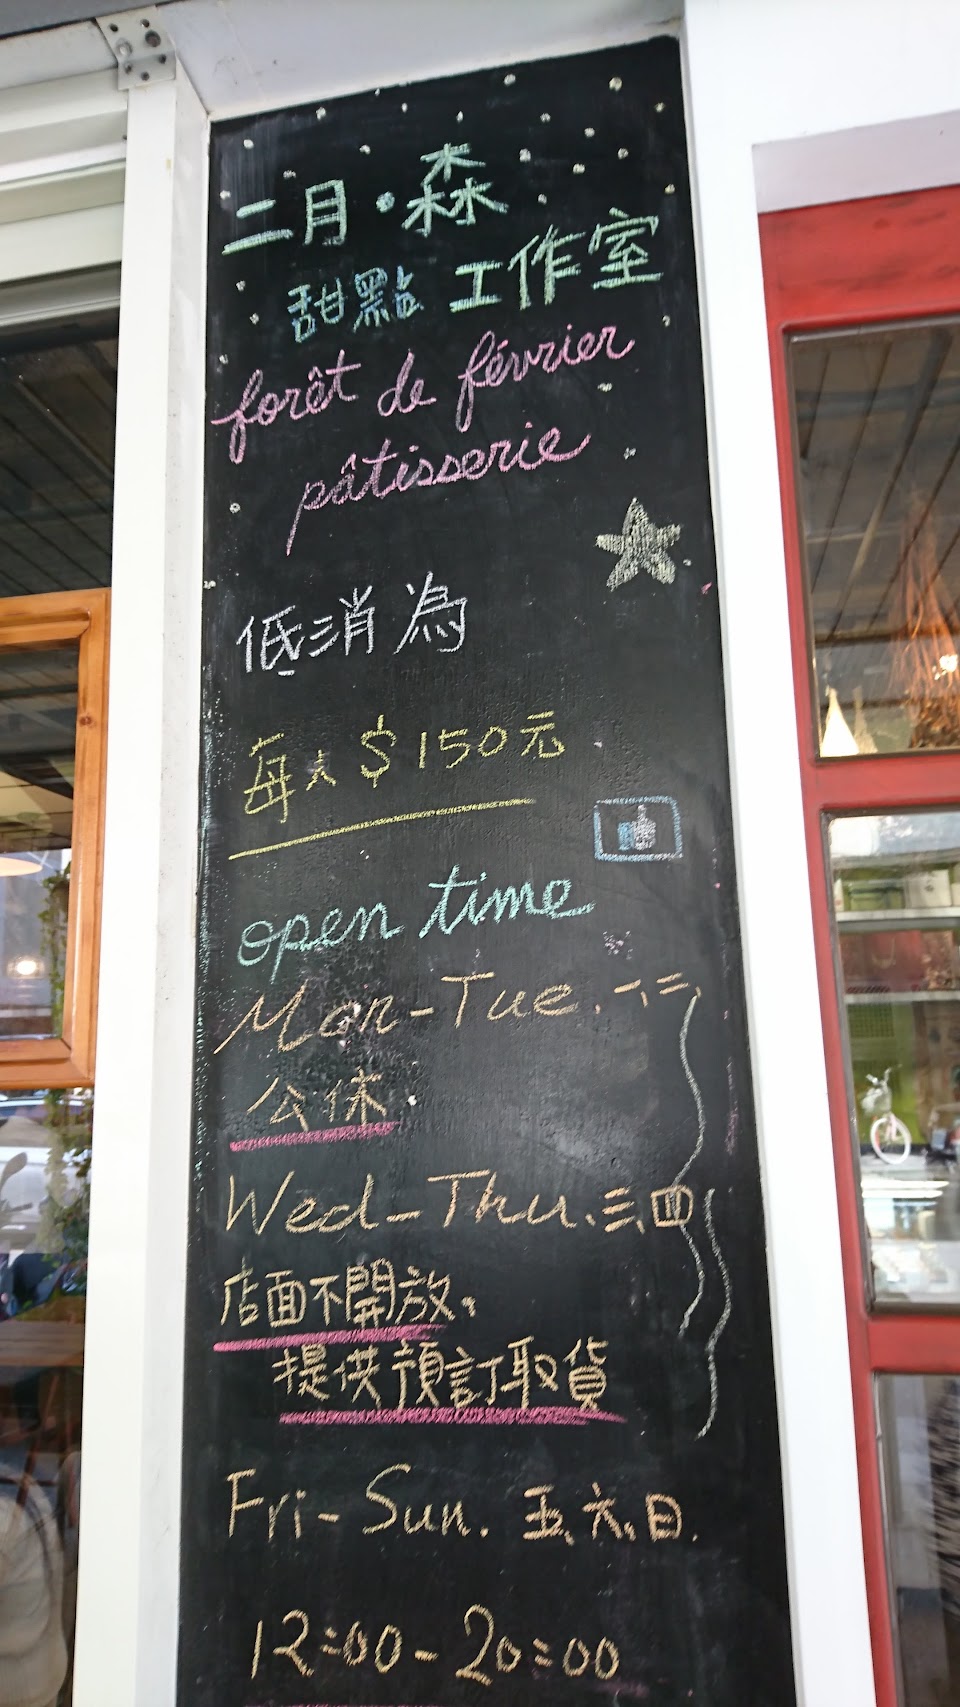 二月·森
甜點 工作室
forêt de février
pâtisserie
低消為
每人 $150元
open time
Mon-Tue. 一、二、
公休.
Wed-Thu. 三、四
店面不開放,
提供預訂取貨
Fri-Sun. 五、六、日.
12:00-20:00